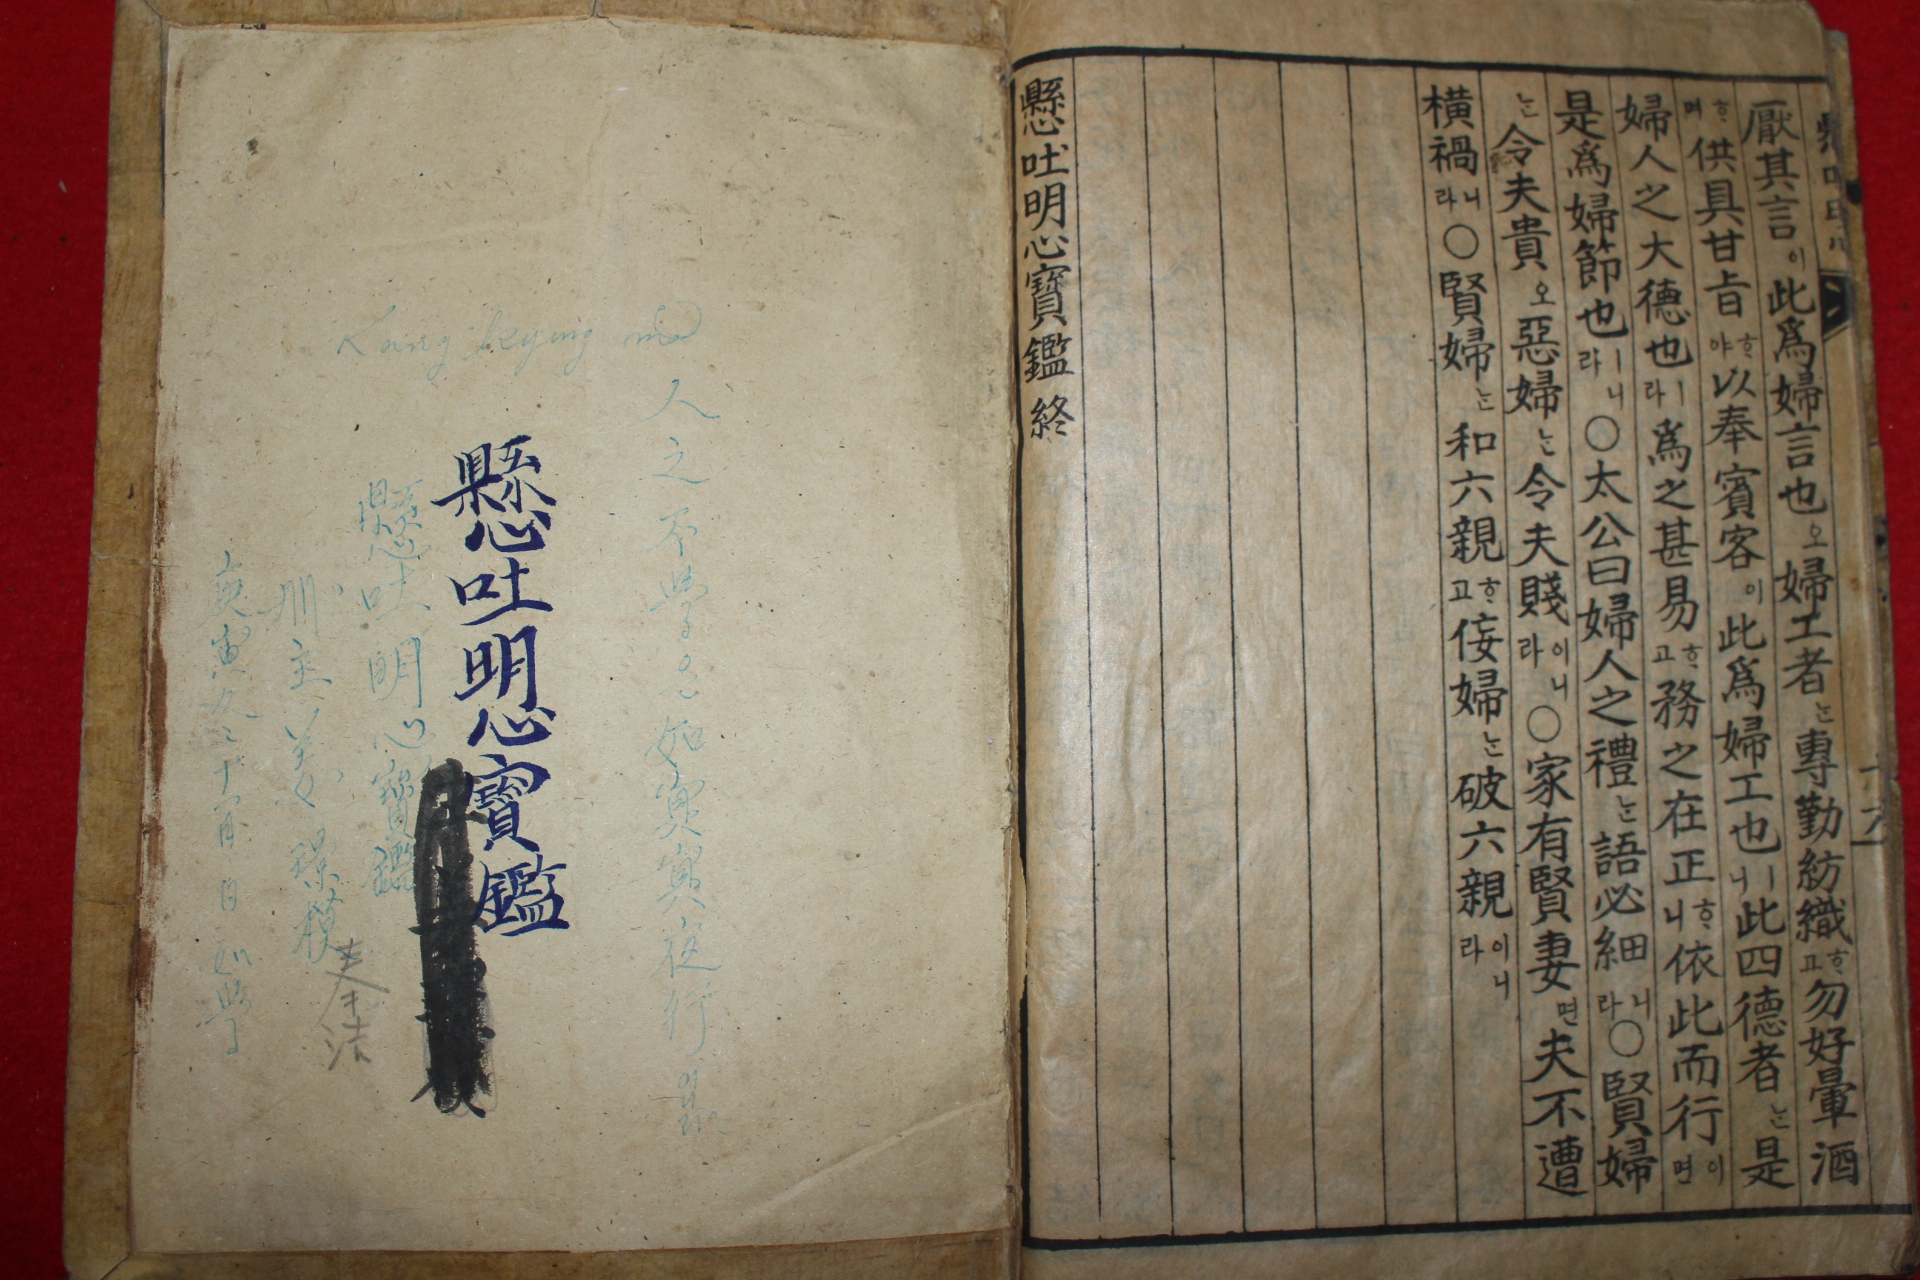 厭其言이此爲婦言也오婦工者는專勤紡織ᄒᆞ고勿好暈酒
ᄒᆞ며供具甘旨ᄒᆞ야以奉賓客이此爲婦工也ㅣ니此四德者는是
婦人之大德也ㅣ라爲之甚易ᄒᆞ고務之在正ᄒᆞ니依此而行이면
是爲婦節也ㅣ니라○太公曰婦人之禮는語必細니라○賢婦
는令夫貴오惡婦는令夫賤이니라○家有賢妻면夫不遭
橫禍니라○賢婦는和六親ᄒᆞ고侫婦는破六親이니라
懸吐明心寶鑑 終
Kang kyung mo
人之不學은如冥冥夜行이
懸吐明心寶鑑
懸吐明心寶鑑
冊主姜璟模
庚寅九二十一月 日